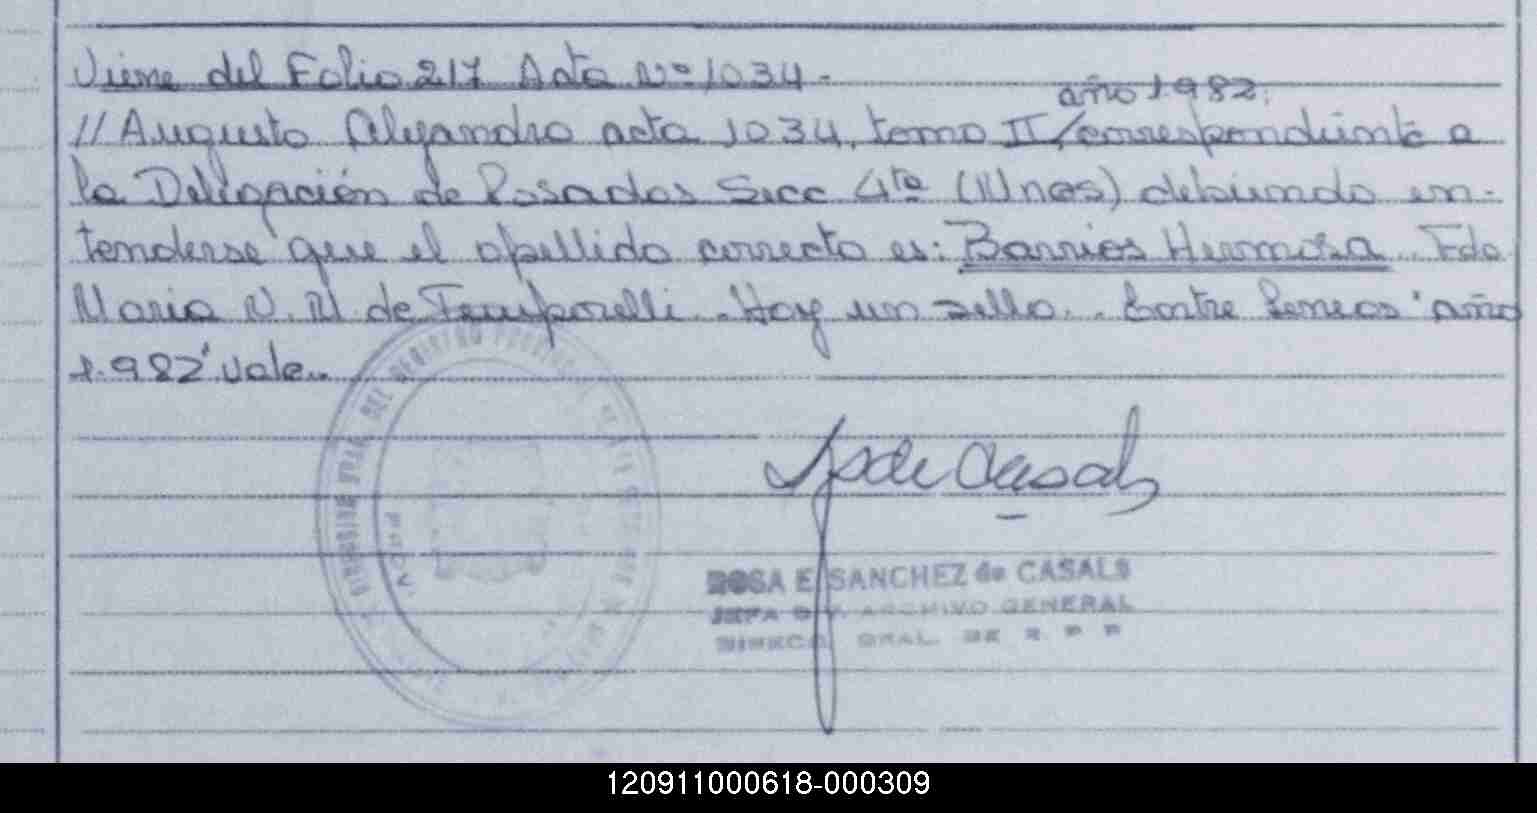 Viene del Folio 217 Acta Nº 1034.-
año 1982.
// Augusto Alejandro acta 1034, tomo II/correspondiente a
la Delegación de Posadas Secc 4ta (Mnes) debiendo en-
tenderse que el apellido correcto es: Barrios Hermosa. Fdo
Maria N. M. de Temporelli. Hay un sello.. Entre lineas "año
1.982" vale..
ROSA E SANCHEZ de CASALS
JEFA DIV. ARCHIVO GENERAL
DIRECC. GRAL. DE R. P P
PROV.
120911000618-000309